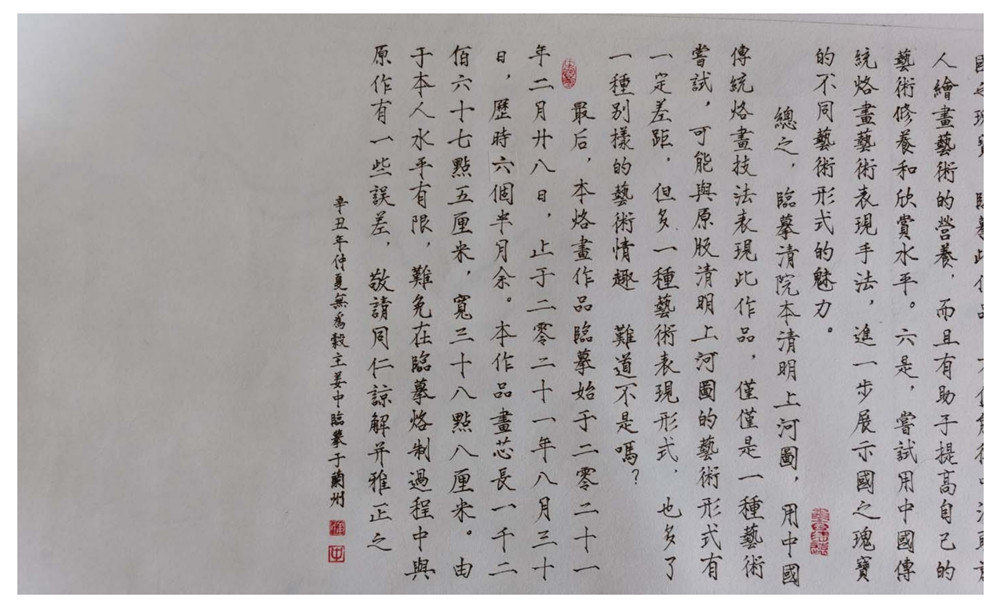 國之瑰寶 臨摹此作品
人繪畫藝術的營養，而且有助于提高自己的
藝術修養和欣賞水平。六是，嘗試用中國傳
統烙畫藝術表現手法，進一步展示國之瑰寶
的不同藝術形式的魅力。
總之，臨摹清院本清明上河圖，用中國
傳統烙畫技法表現此作品，僅僅是一種藝術
嘗試，可能與原版清明上河圖的藝術形式有
一定差距，但多一種藝術表現形式，也多了
一種别樣的藝術情趣 難道不是嗎？
最后，本烙畫作品臨摹始于二零二十一
年二月廿八日，止于二零二十一年八月三十
日，歷時六個半月余。本作品畫芯長一千二
佰六十七點五厘米，寬三十八點八厘米。由
于本人水平有限，難免在臨摹烙制過程中與
原作有一些誤差，敬請同仁諒解并雅正之
辛丑年仲夏無爲穀主姜中臨摹于蘭州